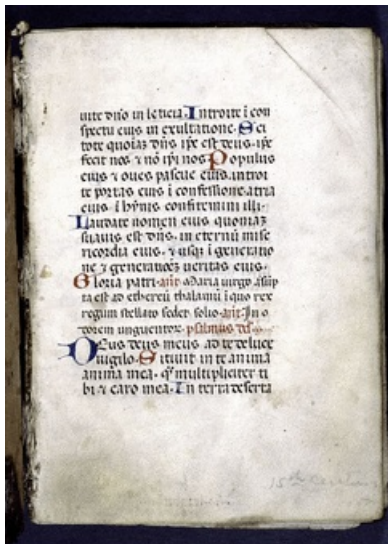 uite dño in leticia. Introite i con
spectu eius in exultatione. Sci
tote quoiaz dñs ip̃e est deus. ip̃e
fecit nos & nõ ip̃i nos Populus
eius & oues pascue eius. introi
te portas eius i confessione. atria
eius. i hỹnis confitemini illi.
Laudate nomen eius quoniaz
suauis est dñs. in eternũ mise
ricordia eius. & usq; i generatio
ne & generatioez ueritas eius.
Gloria patri. añt. Maria uirgo assũp
ta est ad ethereũ thalamũ i quo rex
regum stellato sedet solio. añt. In o
dorem unguentoꝝ. psalmus dd...
Deus deus meus ad te de luce
uigilo. Sitiuit in te anima
anima mea. q̃ multipliciter ti
bi & caro mea. In terra deserta
15th Century